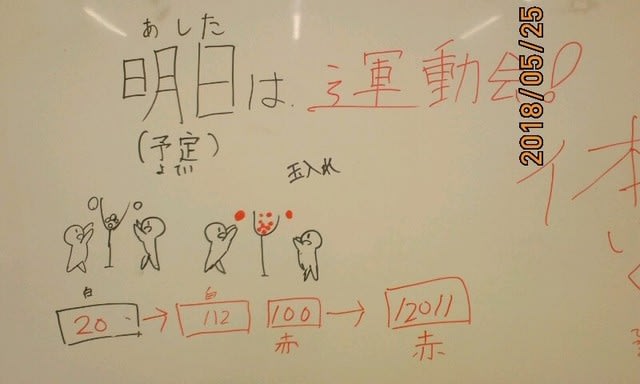 あした
明日は運動会!
(予定)
よてい
2018/05/25
休
い
玉入れ
白
20 → 112 100 → 12011
白
赤
赤